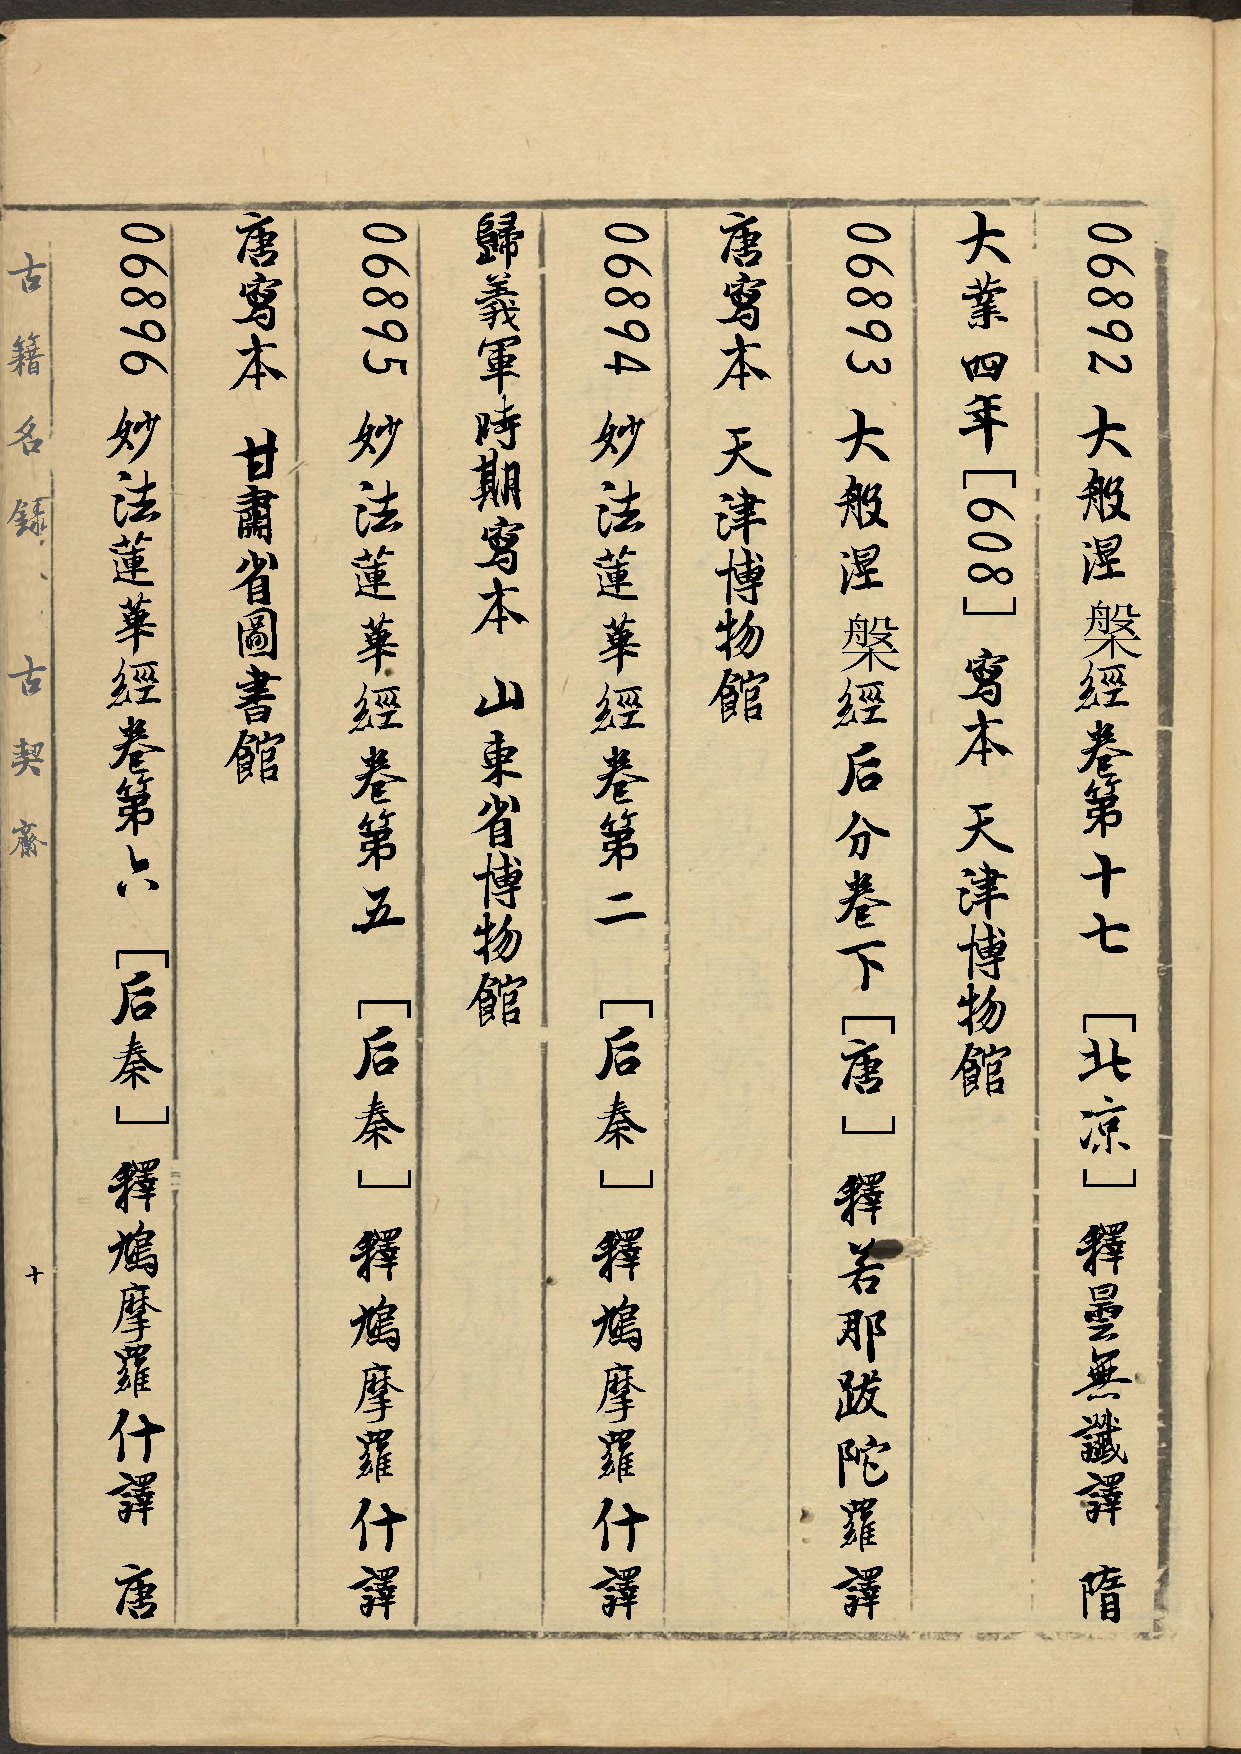 06892 大般涅槃經卷第十七 [北凉] 釋曇無讖譯 隋
大業四年[608]寫本 天津博物館
06893 大般涅槃經后分卷下[唐] 釋若那跋陀羅譯
唐寫本 天津博物館
06894 妙法蓮華經卷第二 [后秦] 釋鳩摩羅什譯
歸義軍時期寫本 山東省博物館
06895 妙法蓮華經卷第五 [后秦] 釋鳩摩羅什譯
唐寫本 甘肅省圖書館
06896 妙法蓮華經卷第六 [后秦] 釋鳩摩羅什譯 唐
古籍名錄、古契齋
十